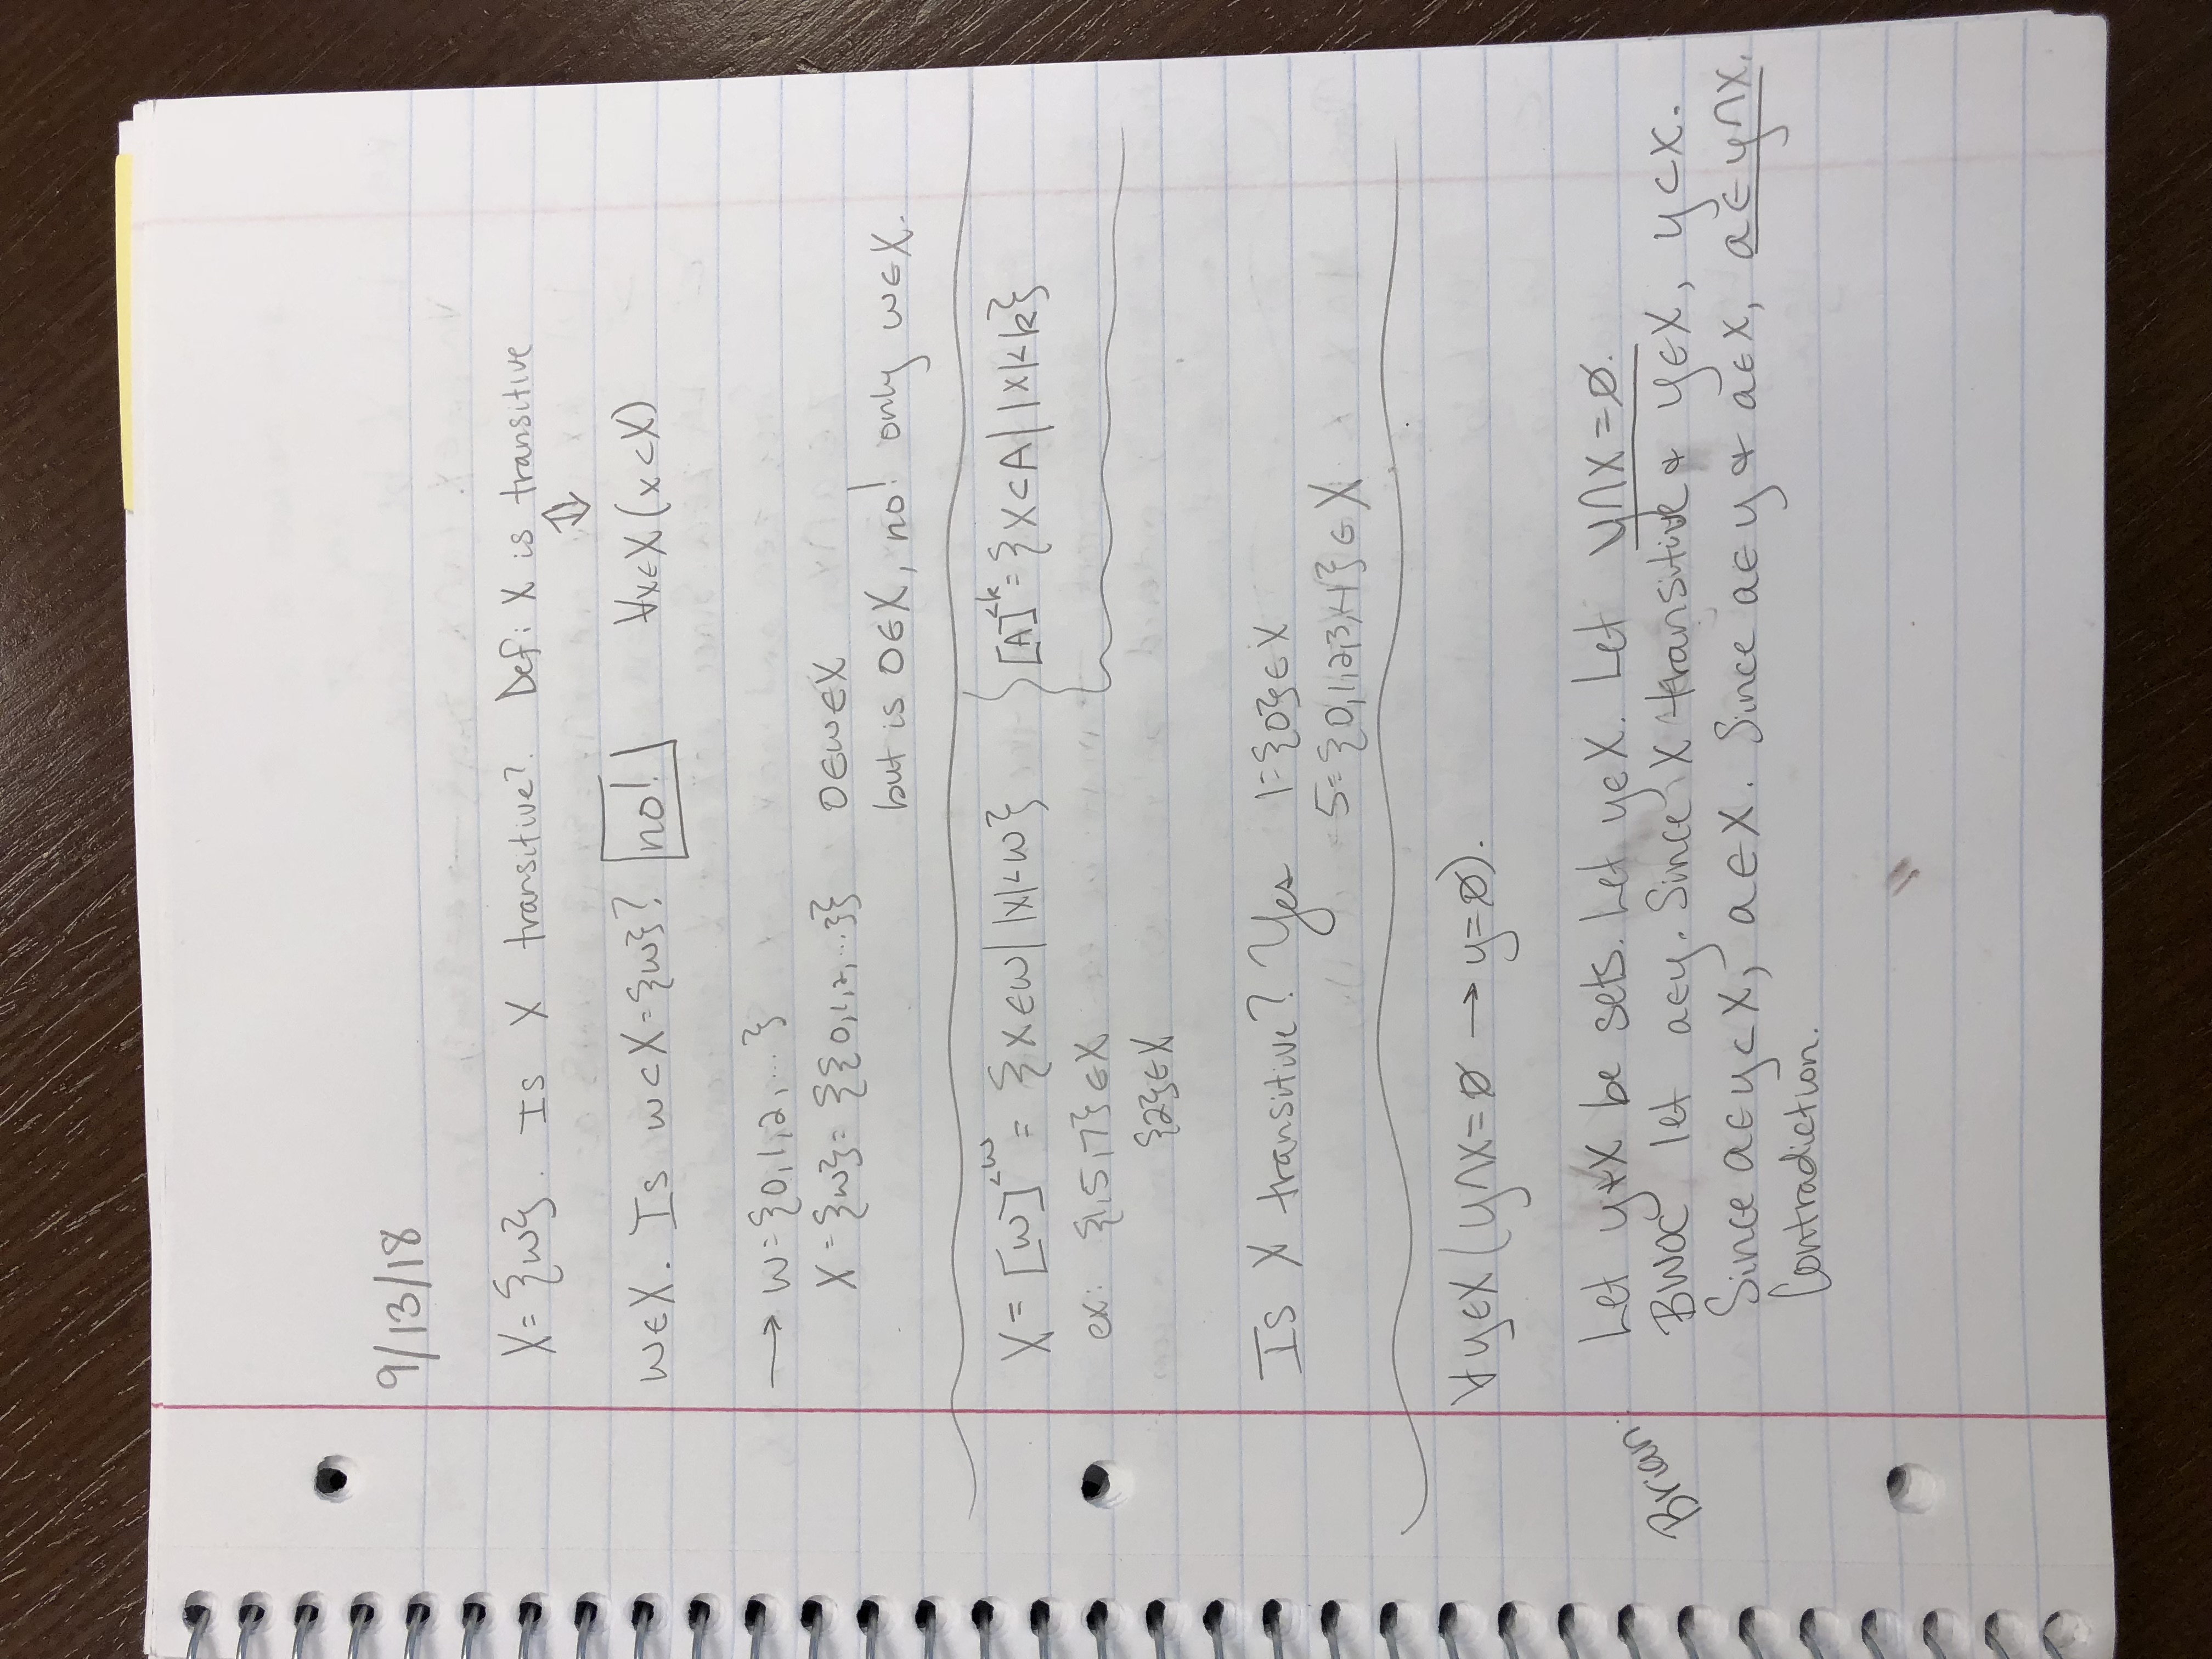 9/13/18
X = {w}. Is X transitive? Def: X is transitive
⇕
w∈X. Is w⊂X={w}? no! ∀x∈X(x⊂X)
→ w={0,1,2,...}
X={w}={{0,1,2,...}} 0∈w∈X
but is 0∈X, no! only w∈X.
X = [w]^{<w} = {x∈w| |x|<w} [A]^{<k} = {X⊂A| |X|<k}
ex: {1,5,7}∈X
{2}∈X
Is X transitive? Yes 1={0}∈X
5={0,1,2,3,4}∈X
∀y∈X(y∩X=∅ → y=∅).
Brian: Let y+X be sets. Let y∈X. Let y∩X=∅.
BWOC let a∈y. Since X transitive + y∈X, y⊂X.
Since a∈y⊂X, a∈X. Since a∈y + a∈X, a∈y∩X.
Contradiction.